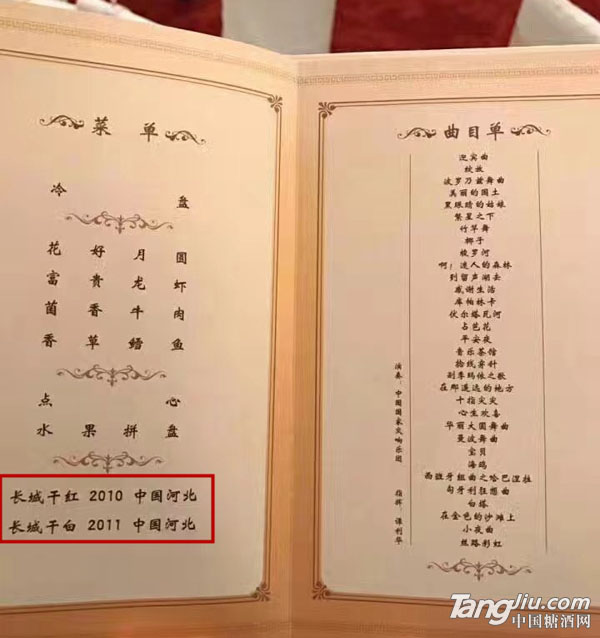 菜 单
冷 盘
花 好 月 圆
富 贵 龙 虾
菌 香 牛 肉
香 草 鳕 鱼
点 心
水 果 拼 盘
长城干红 2010 中国河北
长城干白 2011 中国河北
曲目单
迎宾曲
绽放
波罗乃兹舞曲
美丽的国土
黑眼睛的姑娘
繁星之下
竹竿舞
椰子
梭罗河
啊!迷人的森林
到留声湖去
感谢生活
库帕林卡
伏尔塔瓦河
占芭花
平安夜
音乐茶馆
拾线穿针
刹李玛依之歌
在那遥远的地方
十指尖尖
心生欢喜
华丽大圆舞曲
曼波舞曲
宝贝
海鸥
西班牙组曲之哈巴涅拉
匈牙利狂想曲
白塔
在金色的沙滩上
小夜曲
丝路彩虹
演奏:中国国家交响乐团 指挥:谭利华
TangJiu.com
中国糖酒网